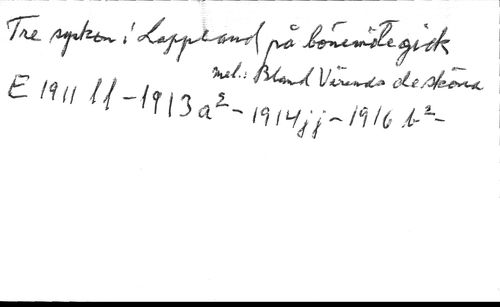 Tre syskon i Lappland på bönemöte gick
mel.: Bland Värends de sköna
E 1911 ll - 1913 a² - 1914 jj - 1916 b² -